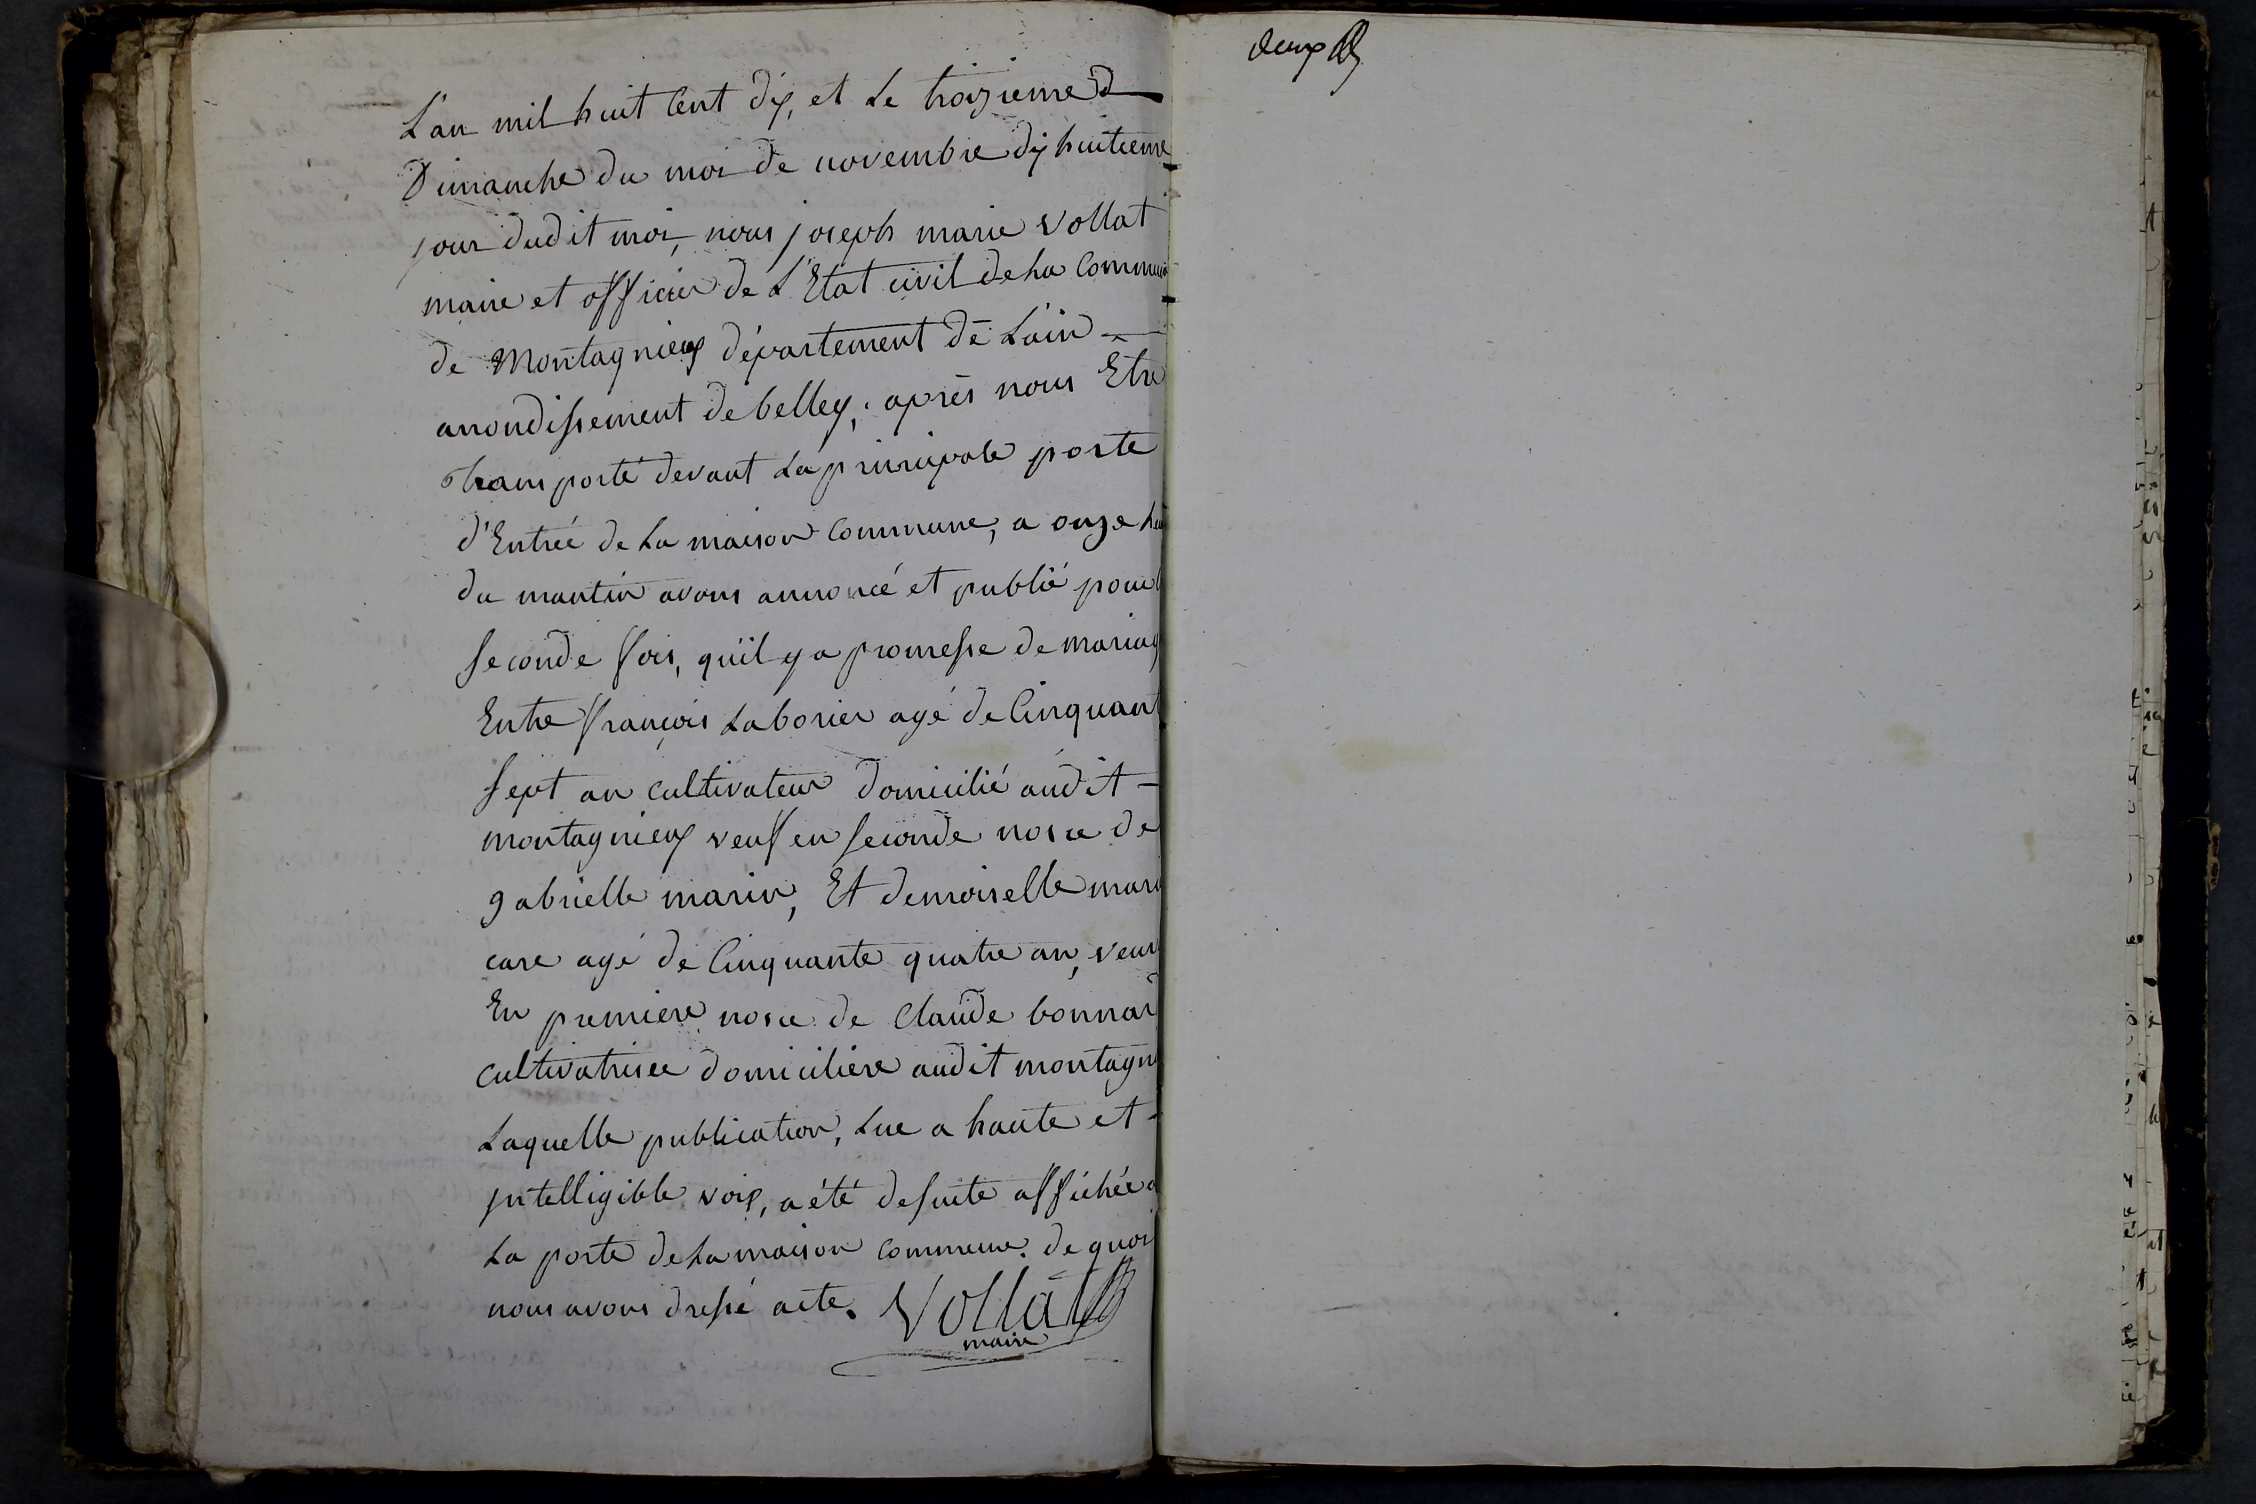 L'an mil huit Cent dix, et Le troizieme d
Dimanche du moi de novembre dix huitieme
jour dudit moi, nous joseph marie vollat
maire et officier de L'Etat civil de La Commune
de Montagnieux département de L'ain
arrondissement de belley, après nous Etre
transporté devant La principale porte
d'Entrée de La maison Commune, a onze heu
du mantin avons annoncé et publié pour
seconde fois, qu'il y a promesse de mariag
Entre françois Laborier agé de Cinquant
sept an cultivateur domicilié audit
montagnieux veuf en seconde nosce de
gabrielle marin, Et demoiselle mari
care agé de Cinquante quatre an, veuv
En premiere nosce de Claude bonnar
cultivatrisce domiciliere audit montagni
Laquelle publication, Lue a haute et
intelligible voix, a été desuite affichée a
La porte de La maison commune. de quoi
nous avons dressé acte. Vollat
maire
deux